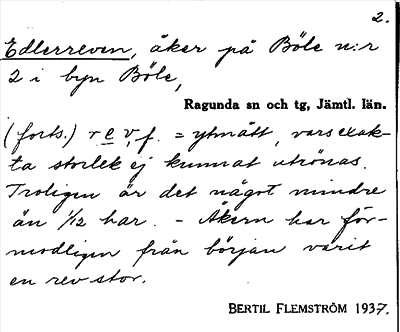 2.
Edlerreven, åker på Böle n:r
2 i byn Böle,
Ragunda sn och tg, Jämtl. län.
(forts.) rev, f. = ytmått, vars exak-
ta storlek ej kunnat utrönas.
Troligen är det något mindre
än 1/12 har. - Åkern har för-
modligen från början varit
en rev stor.
BERTIL FLEMSTRÖM 1937.